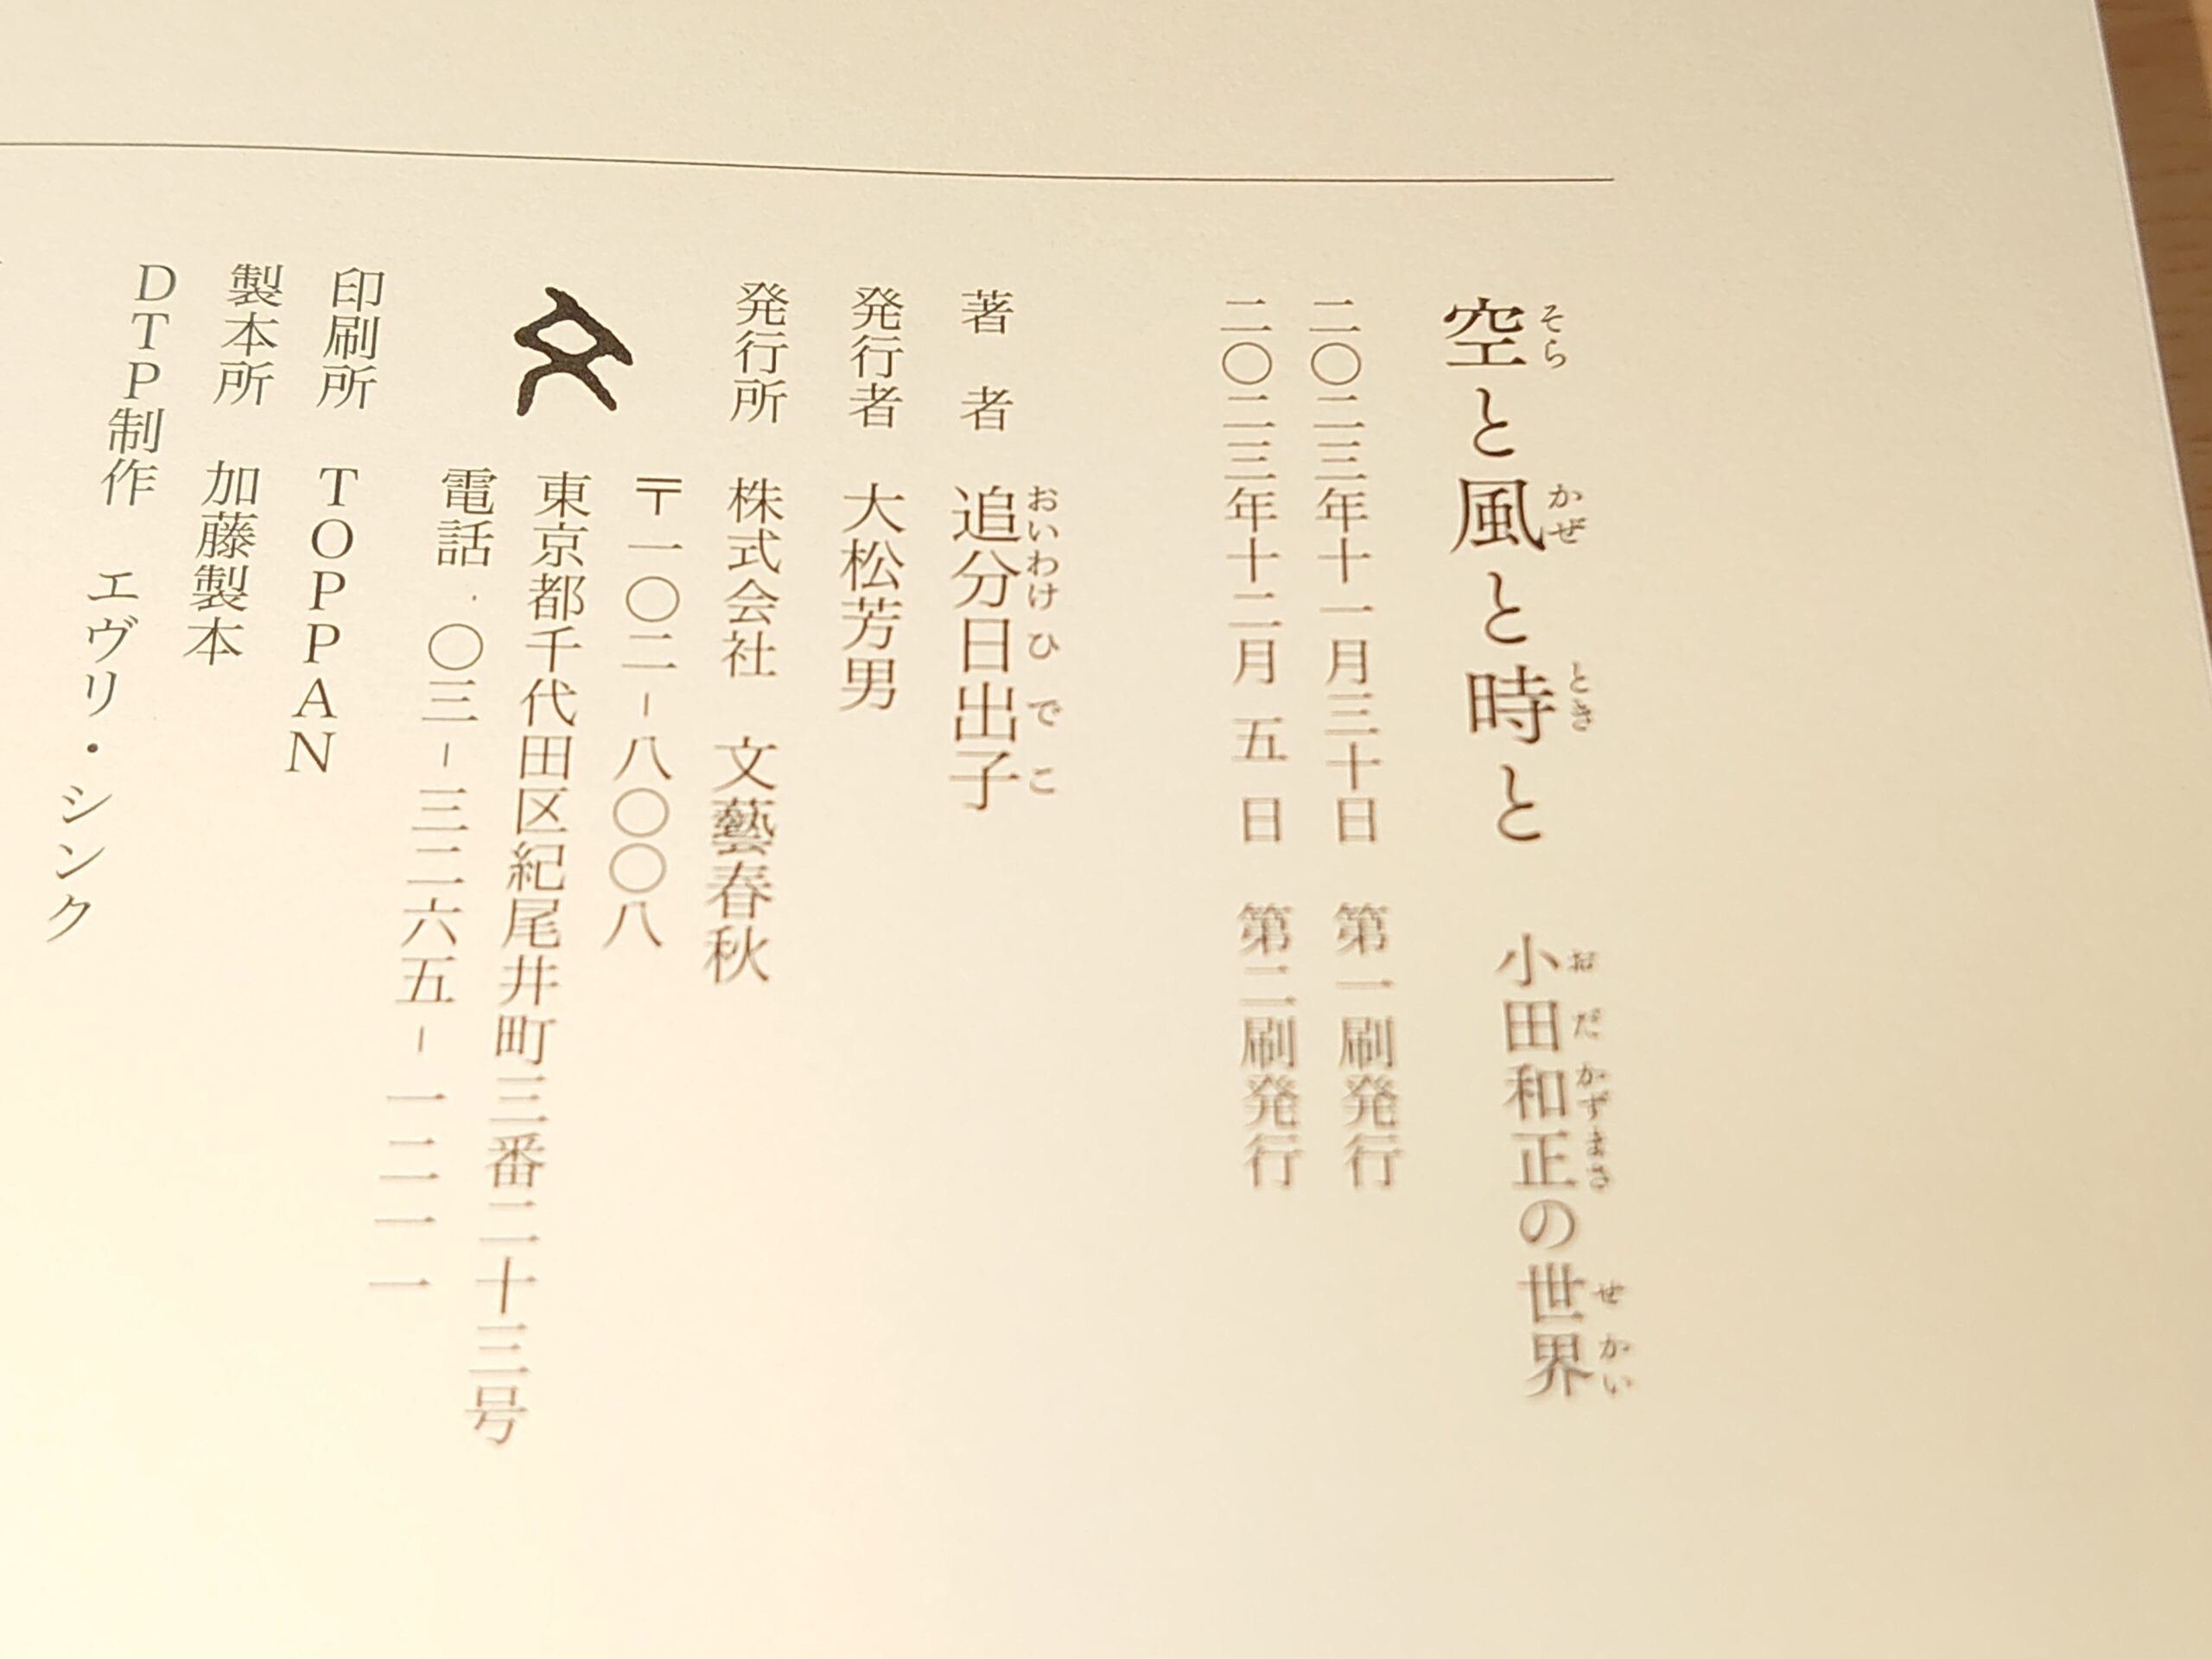 空と風と時と　小田和正の世界
そら　かぜ　とき　おだかずまさ　せかい
二〇二三年十一月三十日　第一刷発行
二〇二三年十二月五日　第二刷発行
著者　追分日出子
おいわけひでこ
発行者　大松芳男
発行所　株式会社　文藝春秋
〒一〇二-八〇〇八
東京都千代田区紀尾井町三番二十三号
電話　〇三-三二六五-一二一一
印刷所　TOPPAN
製本所　加藤製本
DTP制作　エヴリ・シンク